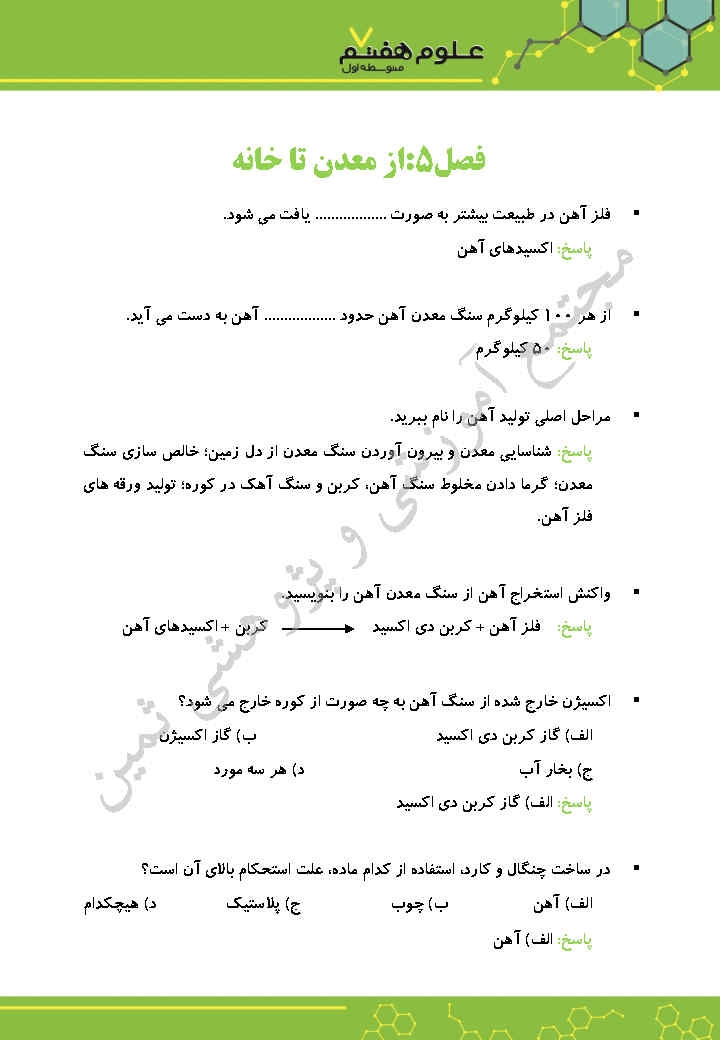 علوم هفتم
۷
متوسطه اول
فصل۵:از معدن تا خانه
▪ فلز آهن در طبیعت بیشتر به صورت .................. یافت می شود.
پاسخ: اکسیدهای آهن
▪ از هر ۱۰۰ کیلوگرم سنگ معدن آهن حدود .................. آهن به دست می آید.
پاسخ: ۵۰ کیلوگرم
▪ مراحل اصلی تولید آهن را نام ببرید.
پاسخ: شناسایی معدن و بیرون آوردن سنگ معدن از دل زمین؛ خالص سازی سنگ
معدن؛ گرما دادن مخلوط سنگ آهن، کربن و سنگ آهک در کوره؛ تولید ورقه های
فلز آهن.
▪ واکنش استخراج آهن از سنگ معدن آهن را بنویسید.
پاسخ: فلز آهن + کربن دی اکسید ⟶ کربن + اکسیدهای آهن
▪ اکسیژن خارج شده از سنگ آهن به چه صورت از کوره خارج می شود؟
الف) گاز کربن دی اکسید ب) گاز اکسیژن
ج) بخار آب د) هر سه مورد
پاسخ: الف) گاز کربن دی اکسید
▪ در ساخت چنگال و کارد، استفاده از کدام ماده، علت استحکام بالای آن است؟
الف) آهن ب) چوب ج) پلاستیک د) هیچکدام
پاسخ: الف) آهن
مجتمع آموزشی و پژوهشی ثمین